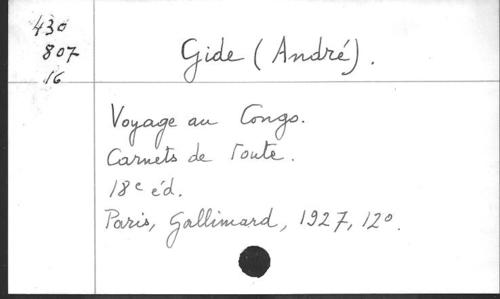 430
807
16
Gide (André).
Voyage au Congo.
Carnets de route.
18e éd.
Paris, Gallimard, 1927, 12o.